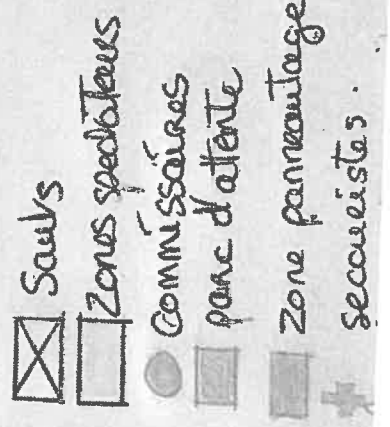 Sauts
Zones spectateurs
Commissaires
parc d'attente
Zone panneautage
secouristes.